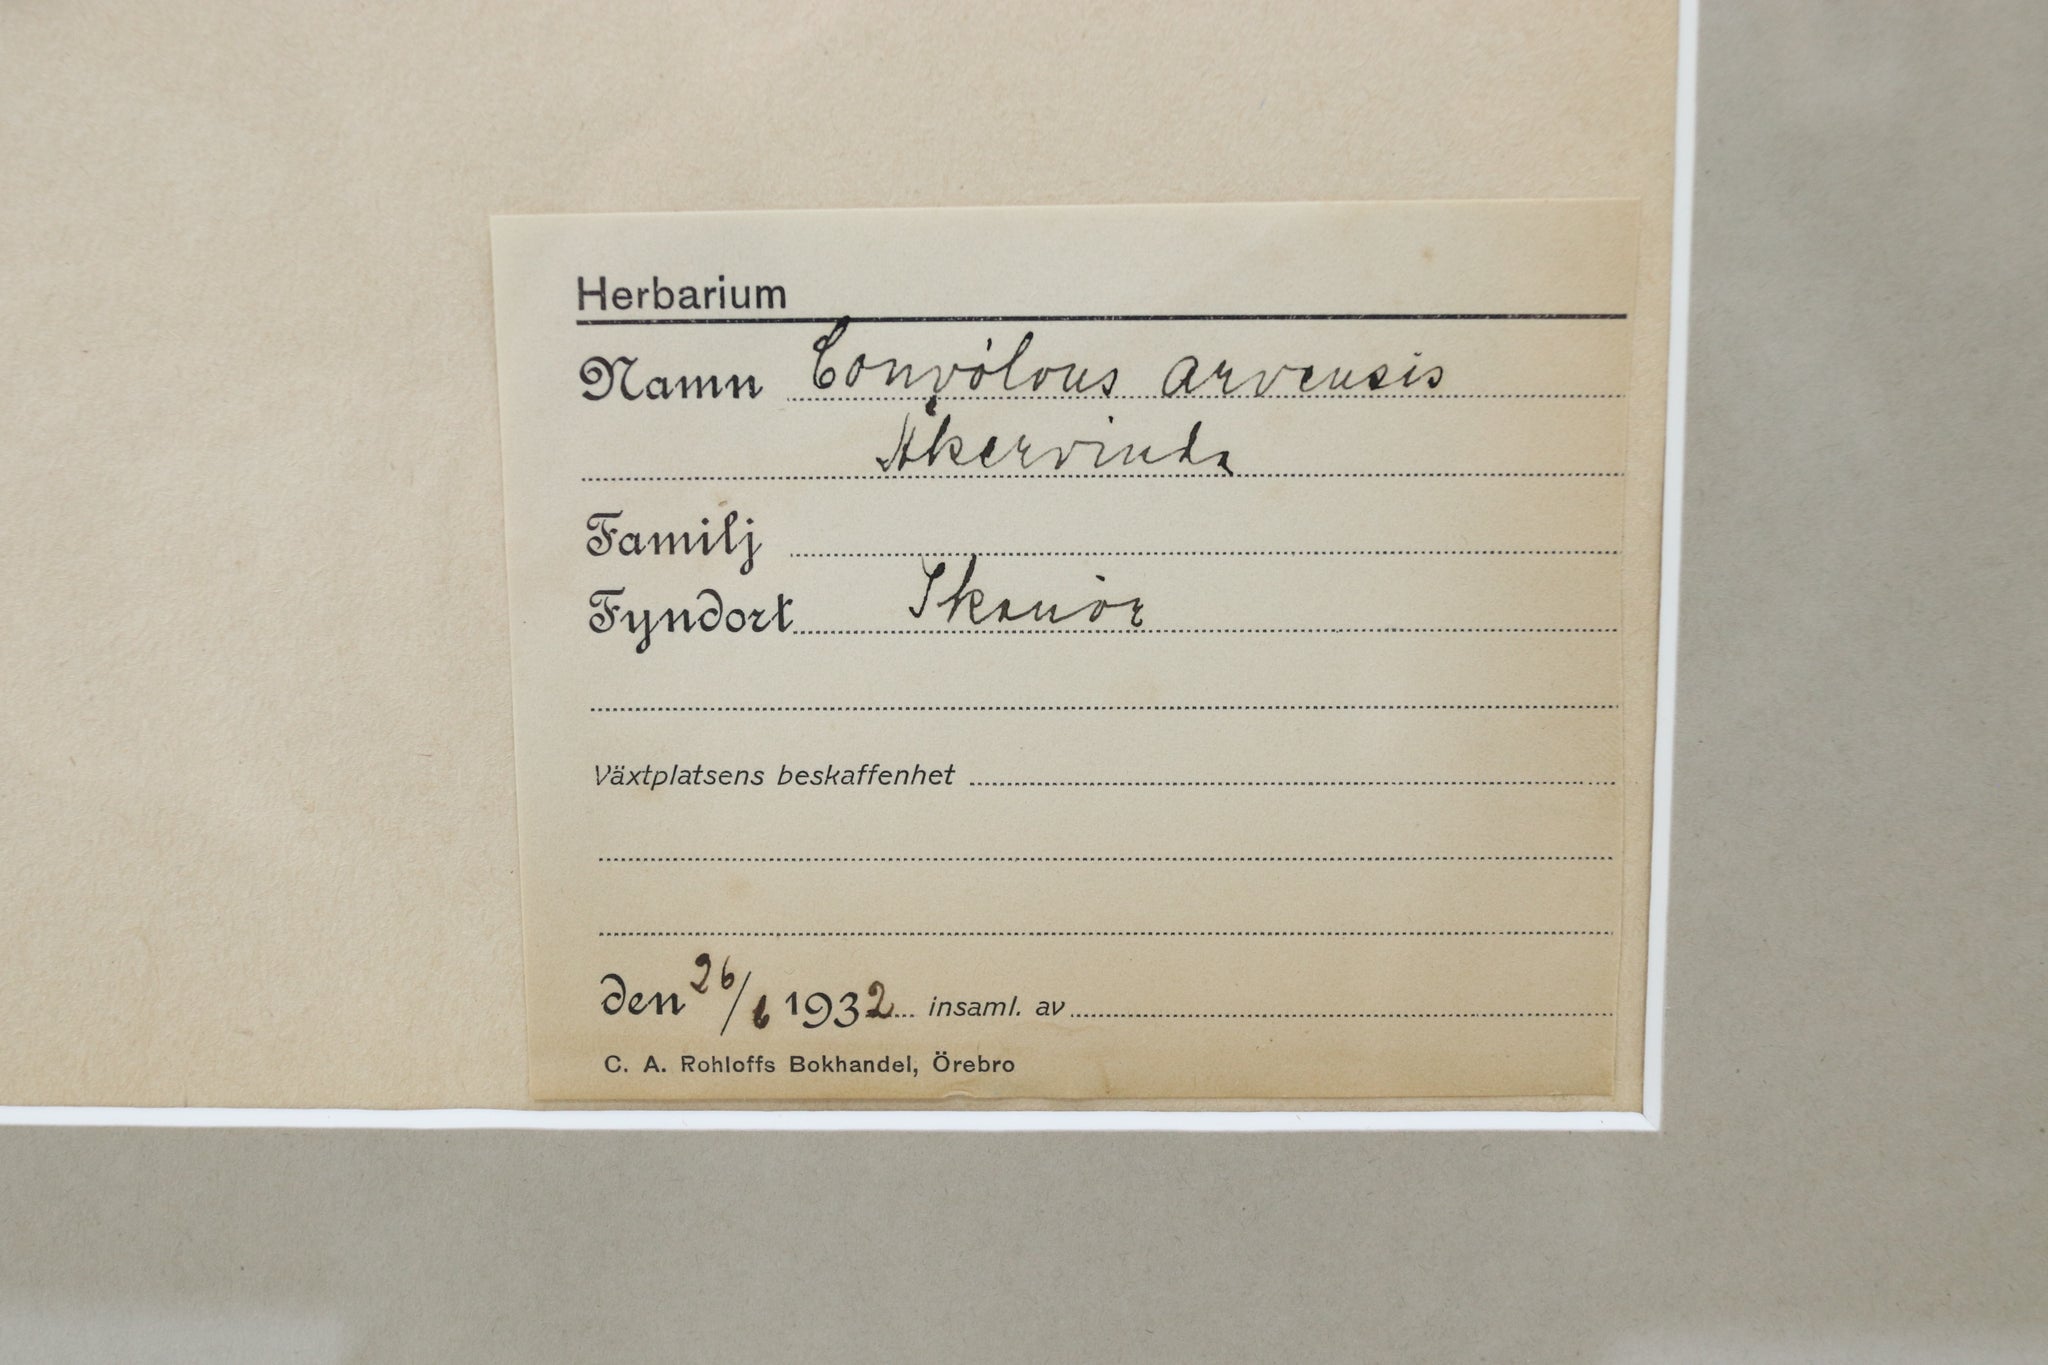 Herbarium
Namn Convólous arvensis
Åkervinda
Familj
Fyndort Skanör
Växtplatsens beskaffenhet
den 26/6 1932 insaml. av
C. A. Rohloffs Bokhandel, Örebro